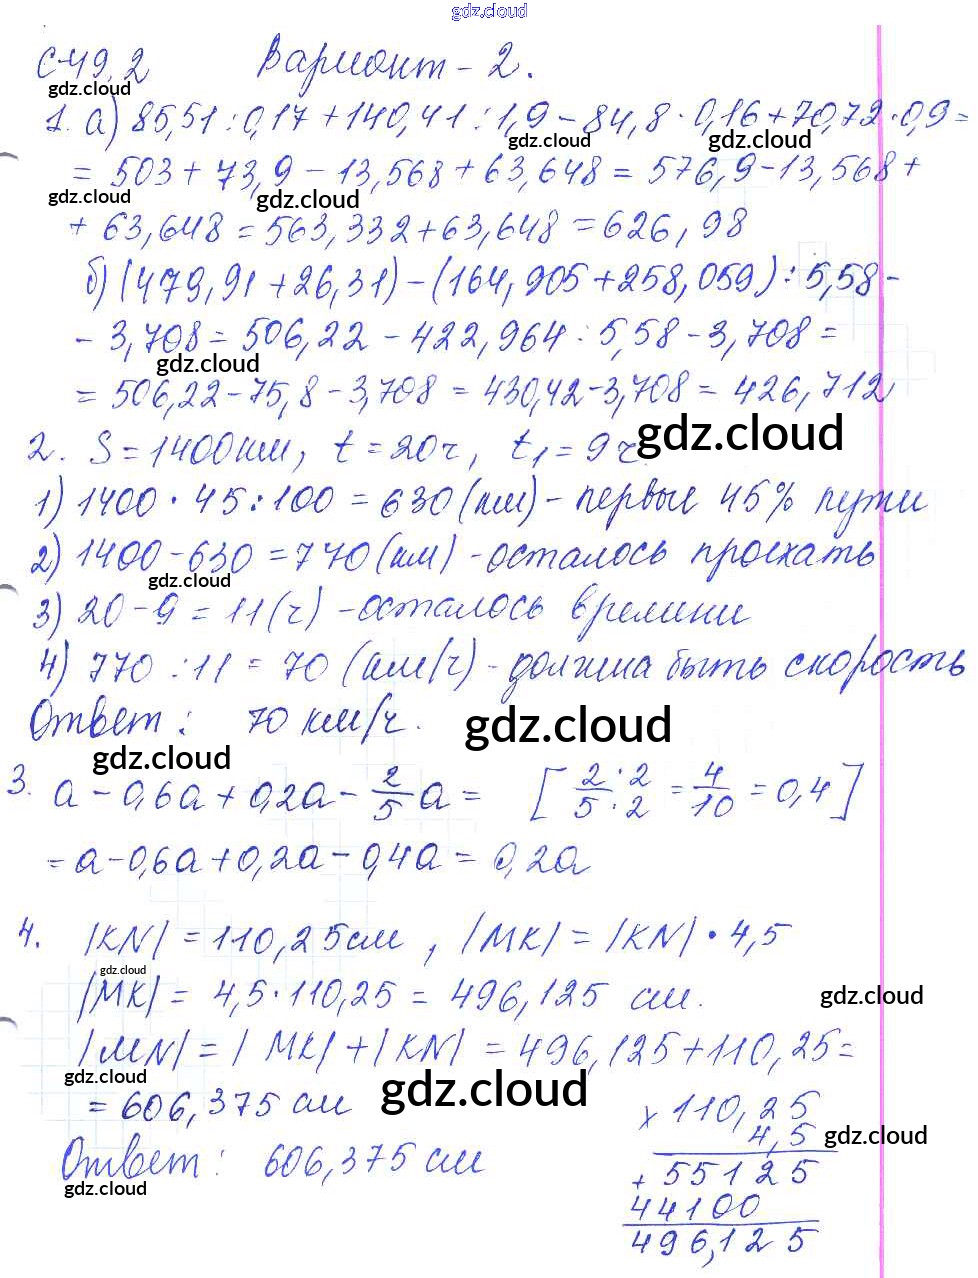 gdz.cloud
С-49.2 Вариант - 2.
gdz.cloud
1. а) 85,51 : 0,17 + 140,41 : 1,9 - 84,8 · 0,16 + 70,72 · 0,9 =
gdz.cloud gdz.cloud
= 503 + 73,9 - 13,568 + 63,648 = 576,9 - 13,568 +
gdz.cloud gdz.cloud
+ 63,648 = 563,332 + 63,648 = 626,98
б) (479,91 + 26,31) - (164,905 + 258,059) : 5,58 -
- 3,708 = 506,22 - 422,964 : 5,58 - 3,708 =
gdz.cloud
= 506,22 - 75,8 - 3,708 = 430,42 - 3,708 = 426,712
gdz.cloud
2. S = 1400 км, t = 20 ч, t₁ = 9 ч
1) 1400 · 45 : 100 = 630 (км) - первые 45% пути
2) 1400 - 630 = 770 (км) - осталось проехать
gdz.cloud
3) 20 - 9 = 11 (ч) - осталось времени
4) 770 : 11 = 70 (км/ч) - должна быть скорость
Ответ: 70 км/ч.
gdz.cloud
gdz.cloud
3. a - 0,6a + 0,2a - 2/5 a = [2·2/5·2 = 4/10 = 0,4]
= a - 0,6a + 0,2a - 0,4a = 0,2a
4. |KN| = 110,25 см, |MK| = |KN| · 4,5
gdz.cloud
|MK| = 4,5 · 110,25 = 496,125 см.
gdz.cloud
|MN| = |MK| + |KN| = 496,125 + 110,25 =
gdz.cloud gdz.cloud
= 606,375 см
Ответ: 606,375 см
gdz.cloud
× 110,25
4,5
gdz.cloud
+ 55125
44100
496,125